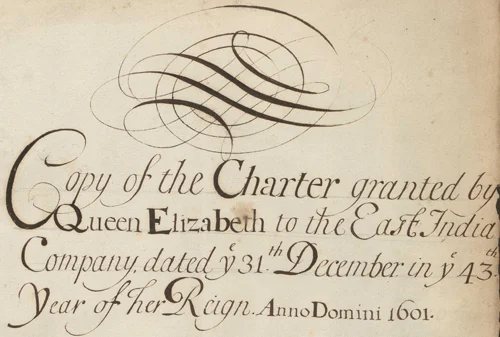 Copy of the Charter granted by
Queen Elizabeth to the East India
Company, dated yͤ 31.th December in yͤ 43.th
Year of her Reign. Anno Domini 1601.